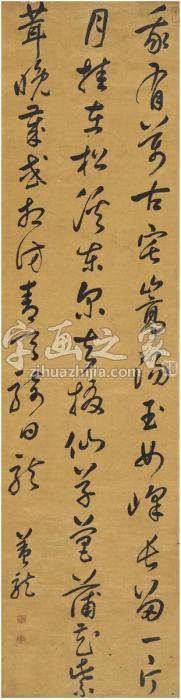 我有萬古宅嵩陽玉女峰長留一片
月挂在松溪東尔去掇仙草菖蒲花紫
茸晚歲或相訪青天騎白龍
字画之家
www.zihuazhijia.com